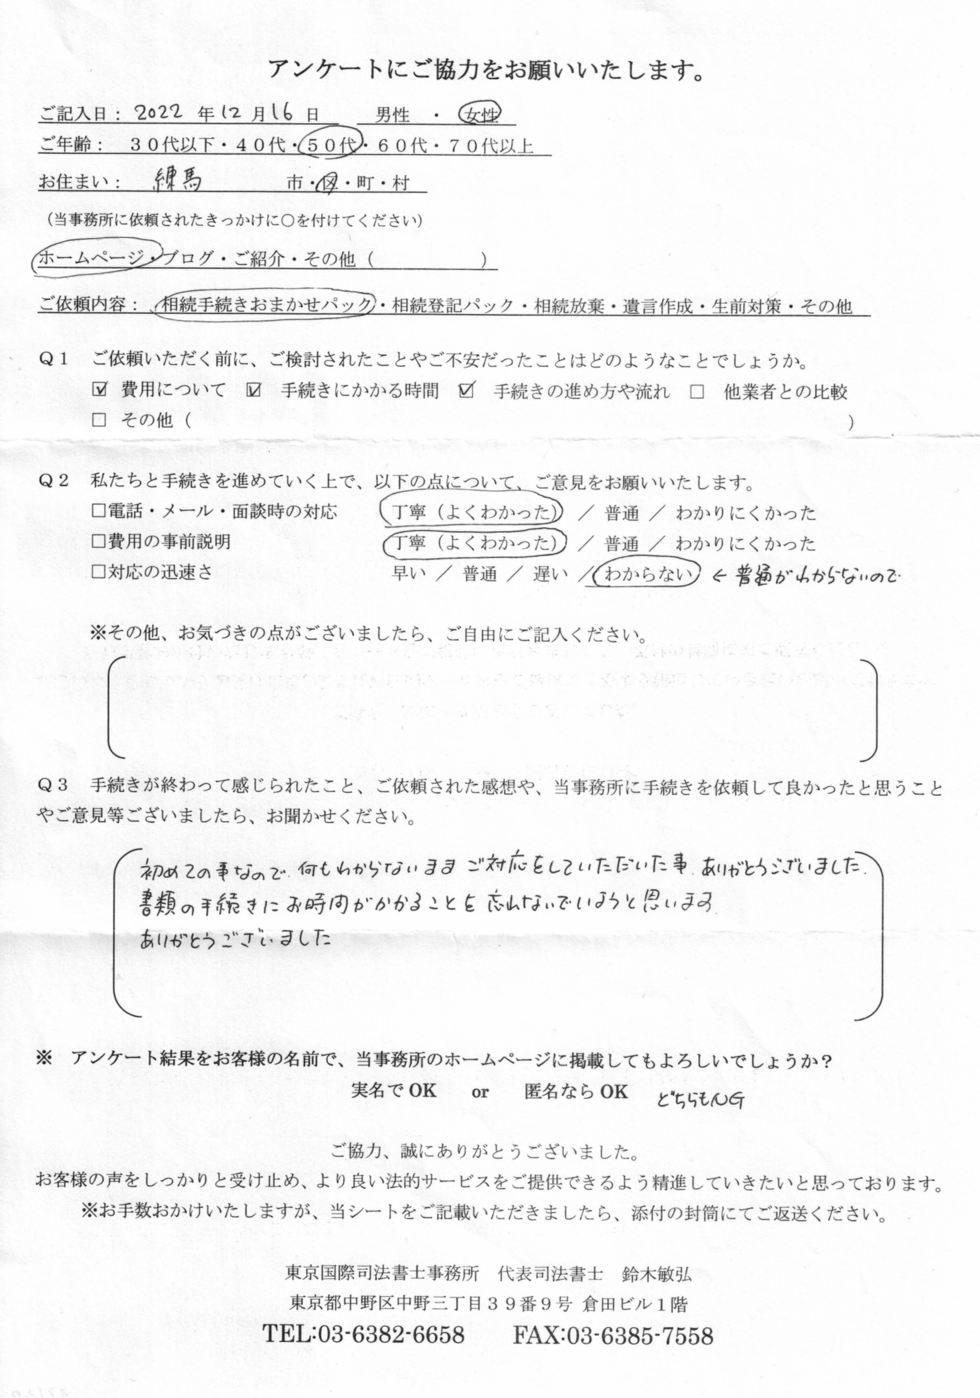 アンケートにご協力をお願いいたします。
ご記入日: 2022 年 12 月 16 日　男性 ・ 女性
ご年齢: 30代以下・40代・50代・60代・70代以上
お住まい: 練馬　市・区・町・村
(当事務所に依頼されたきっかけに○を付けてください)
ホームページ・ブログ・ご紹介・その他(　　　)
ご依頼内容: 相続手続きおまかせパック・相続登記パック・相続放棄・遺言作成・生前対策・その他
Q1　ご依頼いただく前に、ご検討されたことやご不安だったことはどのようなことでしょうか。
☑ 費用について ☑ 手続きにかかる時間 ☑ 手続きの進め方や流れ □ 他業者との比較
□ その他(　　　)
Q2　私たちと手続きを進めていく上で、以下の点について、ご意見をお願いいたします。
□電話・メール・面談時の対応　丁寧(よくわかった) / 普通 / わかりにくかった
□費用の事前説明　丁寧(よくわかった) / 普通 / わかりにくかった
□対応の迅速さ　早い / 普通 / 遅い / わからない ← 普通がわからないので
※その他、お気づきの点がございましたら、ご自由にご記入ください。
Q3　手続きが終わって感じられたこと、ご依頼された感想や、当事務所に手続きを依頼して良かったと思うこと
やご意見等ございましたら、お聞かせください。
初めての事なので.何もわからないまま ご対応をしていただいた事.ありがとうございました.
書類の手続きにお時間がかかることを忘れないでいようと思います
ありがとうございました
※　アンケート結果をお客様の名前で、当事務所のホームページに掲載してもよろしいでしょうか?
実名でOK　or　匿名ならOK　どちらもNG
ご協力、誠にありがとうございました。
お客様の声をしっかりと受け止め、より良い法的サービスをご提供できるよう精進していきたいと思っております。
※お手数おかけいたしますが、当シートをご記載いただきましたら、添付の封筒にてご返送ください。
東京国際司法書士事務所　代表司法書士　鈴木敏弘
東京都中野区中野三丁目39番9号 倉田ビル1階
TEL:03-6382-6658　FAX:03-6385-7558